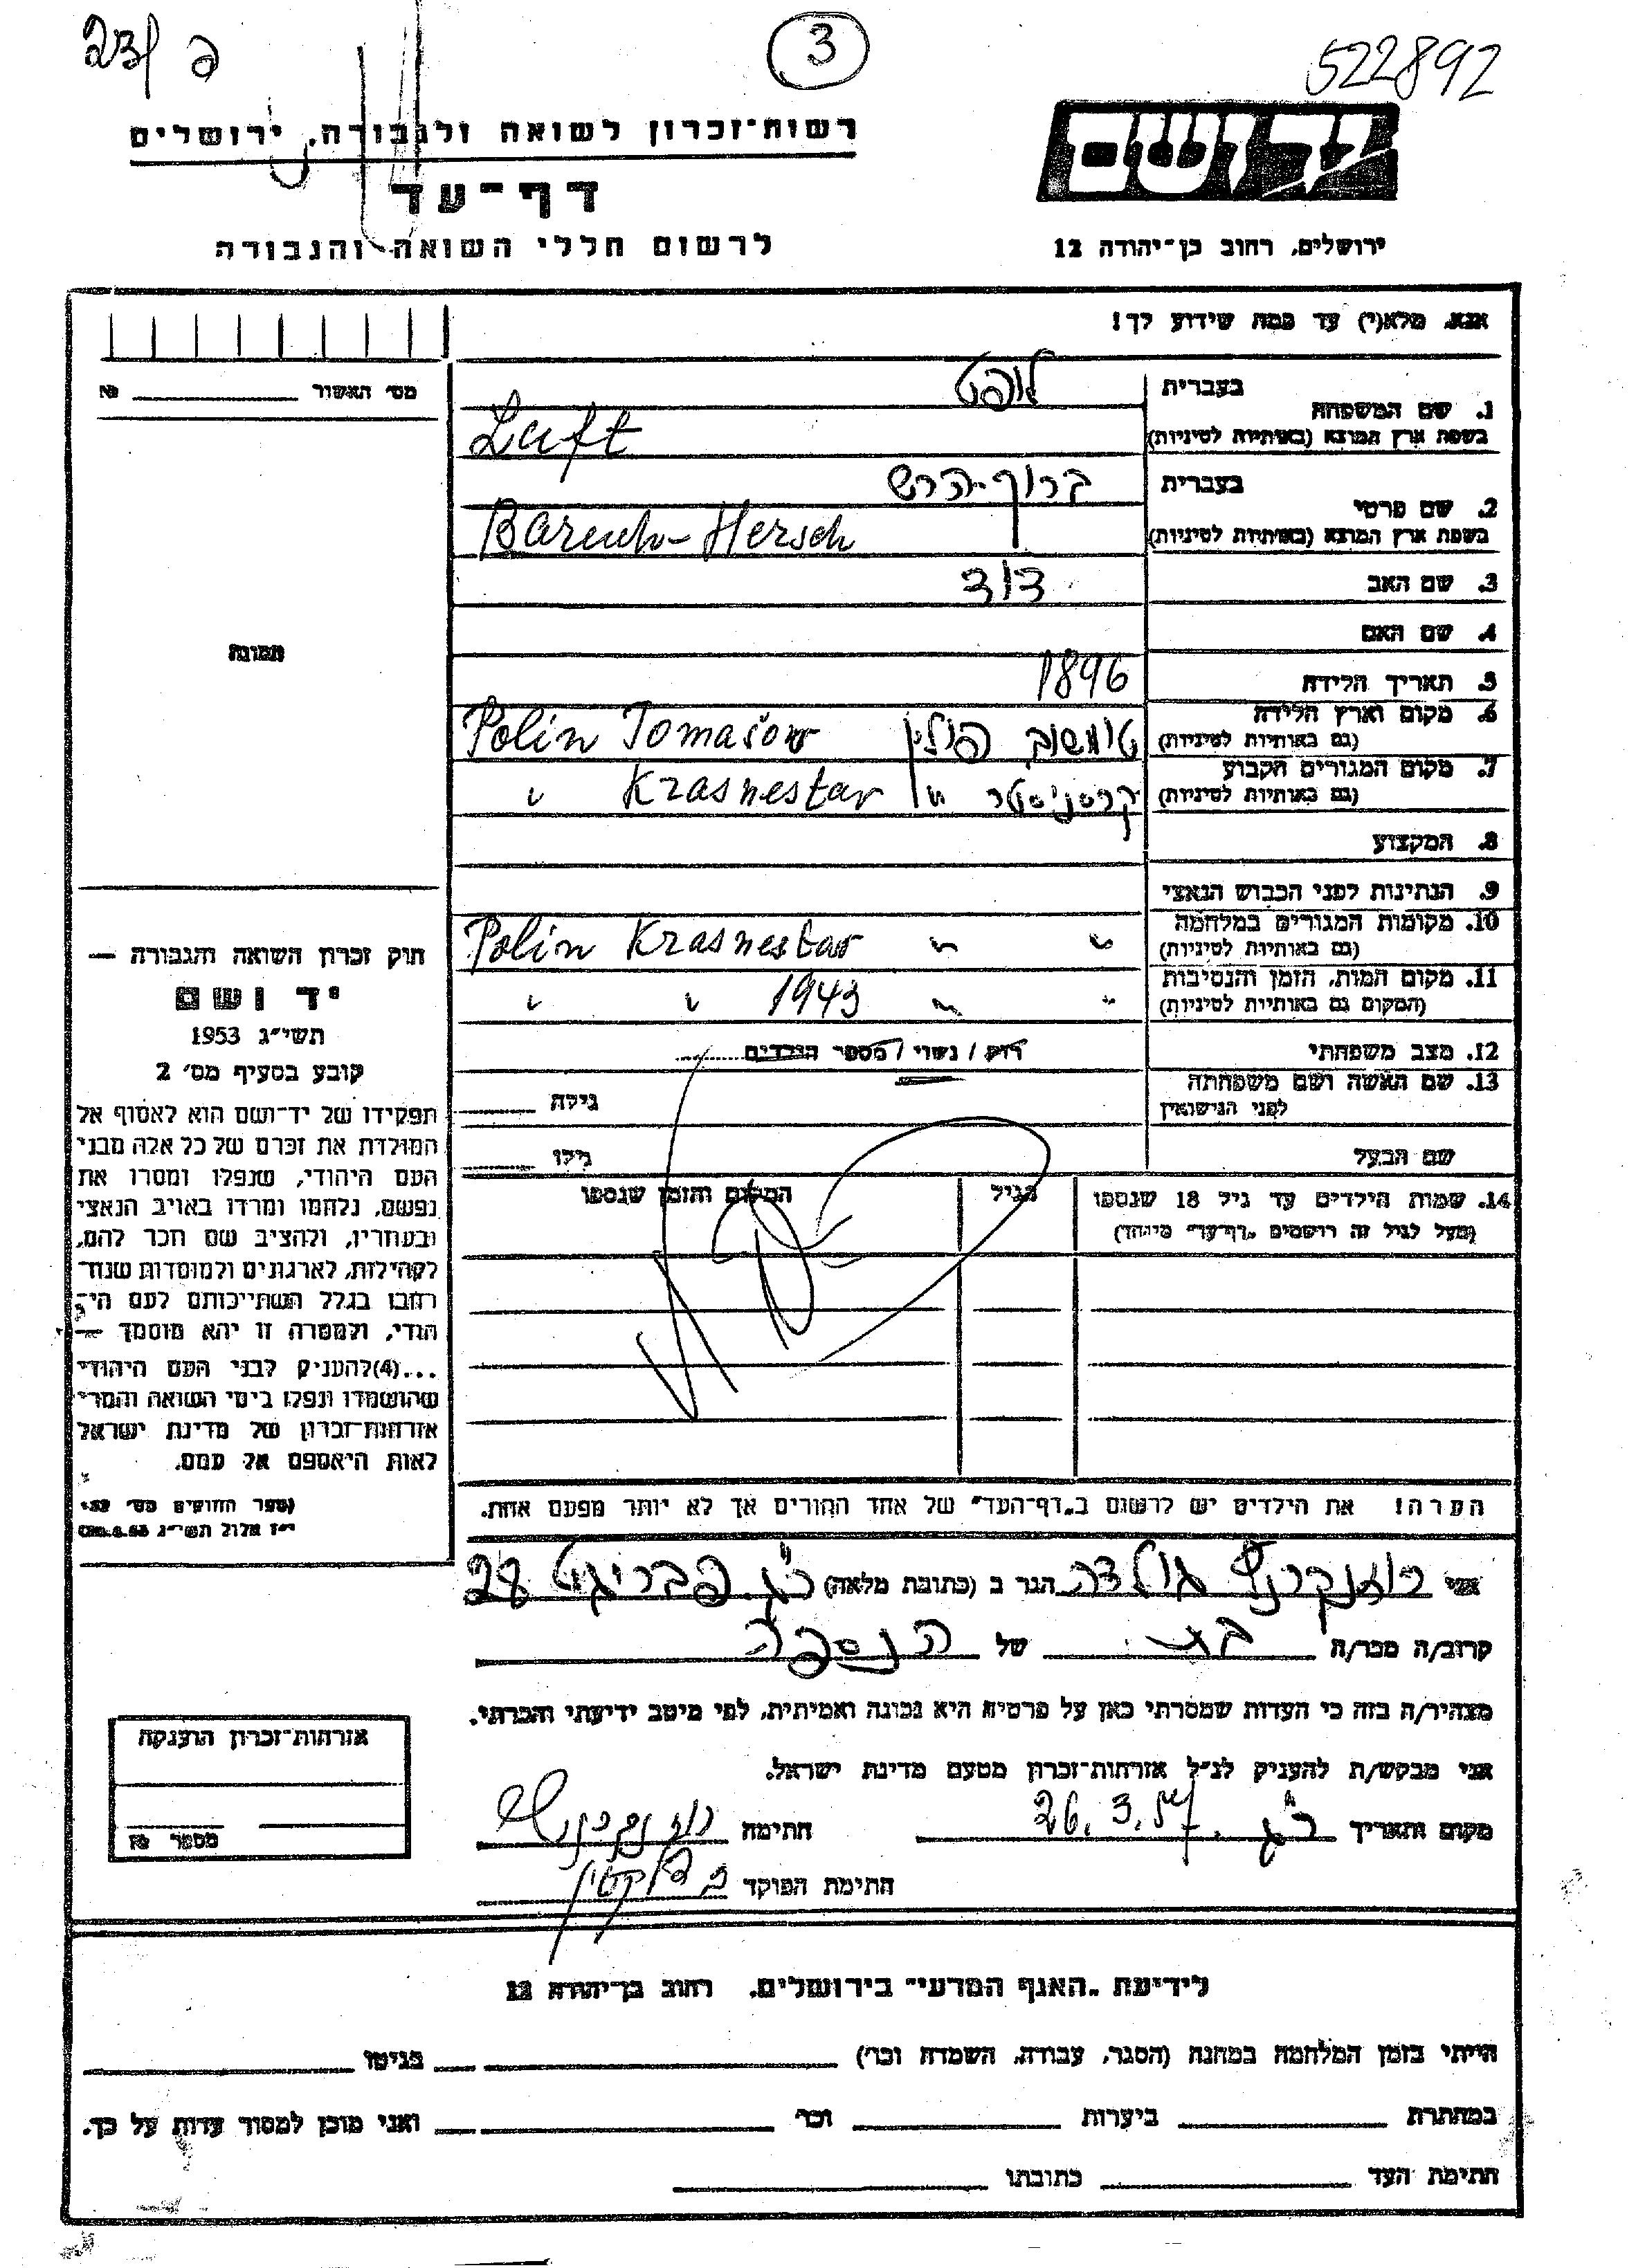 3
522892
רשות־זכרון לשואה ולגבורה, ירושלים
ידושם
דף־עד
ירושלים, רחוב בן־יהודה 12
לרשום חללי השואה והגבורה
אנא, מלא(י) עד כמה שידוע לך!
מס׳ האשור № 
1. שם המשפחה
בעברית לופט
בשפת ארץ המוצא (באותיות לטיניות) Luft
2. שם פרטי
בעברית ברוך-הרש
בשפת ארץ המוצא (באותיות לטיניות) Baruch-Hersch
3. שם האב דוד
4. שם האם
תמונה
5. תאריך הלידה 1896
6. מקום וארץ הלידה
(גם באותיות לטיניות) טומשוב פולין Polin Tomašow
7. מקום המגורים הקבוע
(גם באותיות לטיניות) קרסניסטר " " Krasnestar
8. המקצוע
9. הנתינות לפני הכבוש הנאצי
10. מקומות המגורים במלחמה
(גם באותיות לטיניות) " " Polin Krasnestav
11. מקום המות, הזמן והנסיבות
(המקום גם באותיות לטיניות) " " 1943 " "
12. מצב משפחתי רווק / נשוי / מספר הילדים
13. שם האשה ושם משפחתה
לפני הנישואין גילה
שם הבעל גילו
14. שמות הילדים עד גיל 18 שנספו הגיל המקום והזמן שנספו
(מעל לגיל זה רושמים "דף־עד" מיוחד)
חוק זכרון השואה והגבורה —
יד ושם
תשי״ג 1953
קובע בסעיף מס׳ 2
תפקידו של יד־ושם הוא לאסוף אל
המולדת את זכרם של כל אלה מבני
העם היהודי, שנפלו ומסרו את
נפשם, נלחמו ומרדו באויב הנאצי
ובעוזריו, ולהציב שם וזכר להם,
לקהילות, לארגונים ולמוסדות שנח־
רבו בגלל השתייכותם לעם הי־
הודי, ולמטרה זו יהא מוסמך —
...(4)להעניק לבני העם היהודי
שהושמדו ונפלו בימי השואה והמרי
אזרחות־זכרון של מדינת ישראל
לאות היאספם אל עמם.
(ספר החוקים מס׳ 132
י״ז אלול תשי״ג
הערה! את הילדים יש לרשום ב"דף־העד" של אחד ההורים אך לא יותר מפעם אחת.
אני גולדה הגר ב (כתובת מלאה) 28
קרוב/ה מכר/ה בת של הנספה
מצהיר/ה בזה כי העדות שמסרתי כאן על פרטיה היא נכונה ואמיתית, לפי מיטב ידיעתי והכרתי.
אני מבקש/ת להעניק לנ״ל אזרחות־זכרון מטעם מדינת ישראל.
מקום ותאריך ר"ג 26.3.57 חתימה
חתימת הפוקד
אזרחות־זכרון הוענקה
מספר №
לידיעת "האגף המדעי" בירושלים, רחוב בן־יהודה 12
הייתי בזמן המלחמה במחנה (הסגר, עבודה, השמדה וכו׳) בגיטו
במחתרת ביערות וכו׳ ואני מוכן למסור עדות על כך.
חתימת העד כתובתו